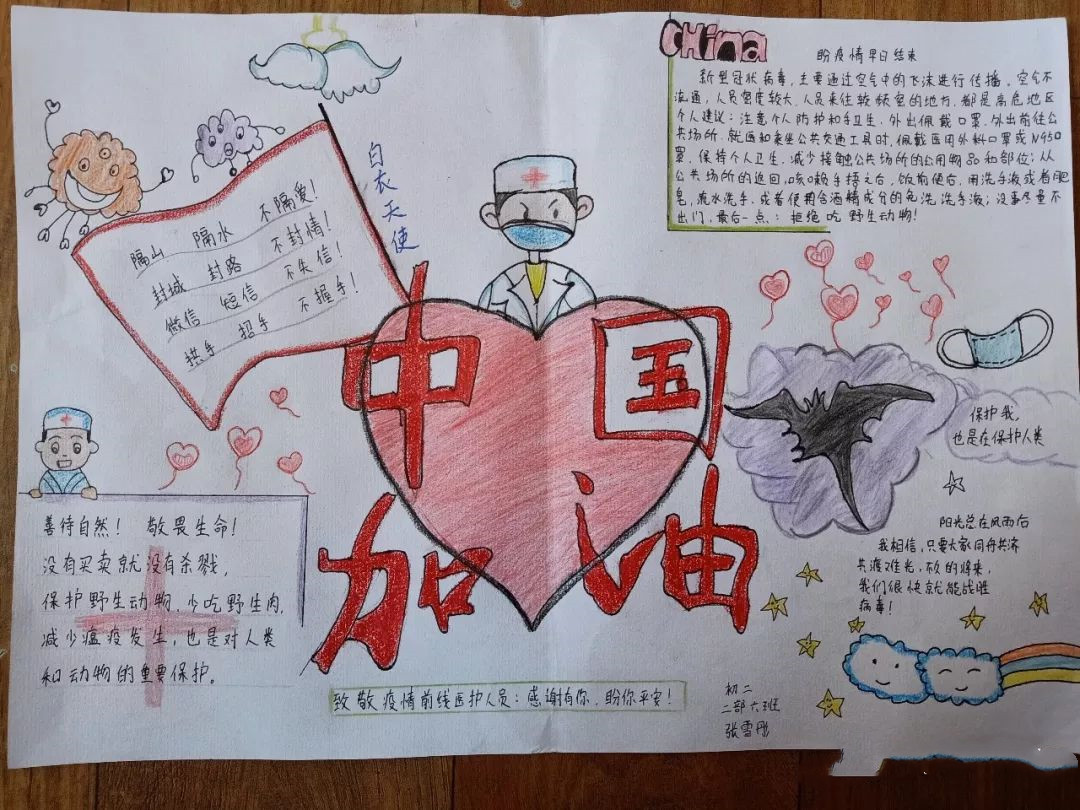 China
盼疫情早日结束
新型冠状病毒,主要通过空气中的飞沫进行传播,空气不
流通,人员密度较大,人员来往较频密的地方,都是高危地区
个人建议:注意个人防护和手卫生,外出佩戴口罩,外出前往公
共场所,就医和乘坐公共交通工具时,佩戴医用外科口罩或N95口
罩,保持个人卫生,减少接触公共场所的公用物品和部位;从
公共场所的返回,咳嗽手捂之后,饭前便后,用洗手液或者肥
皂,流水洗手,或者使用含酒精成分的免洗洗手液;没事尽量不
出门,最后一点:拒绝吃野生动物!
白衣天使
隔山 隔水 不隔爱!
封城 封路 不封情!
微信 短信 不失信!
拱手 招手 不握手!
中国
加油
保护我,
也是在保护人类
善待自然! 敬畏生命!
没有买卖就没有杀戮,
保护野生动物,少吃野生肉,
减少瘟疫发生,也是对人类
和动物的重要保护。
阳光总在风雨后
我相信,只要大家同舟共济
共渡难关,不久的将来,
我们很快就能战胜
病毒!
致敬疫情前线医护人员:感谢有你,盼你平安!
初二
二部六班
张雪彤